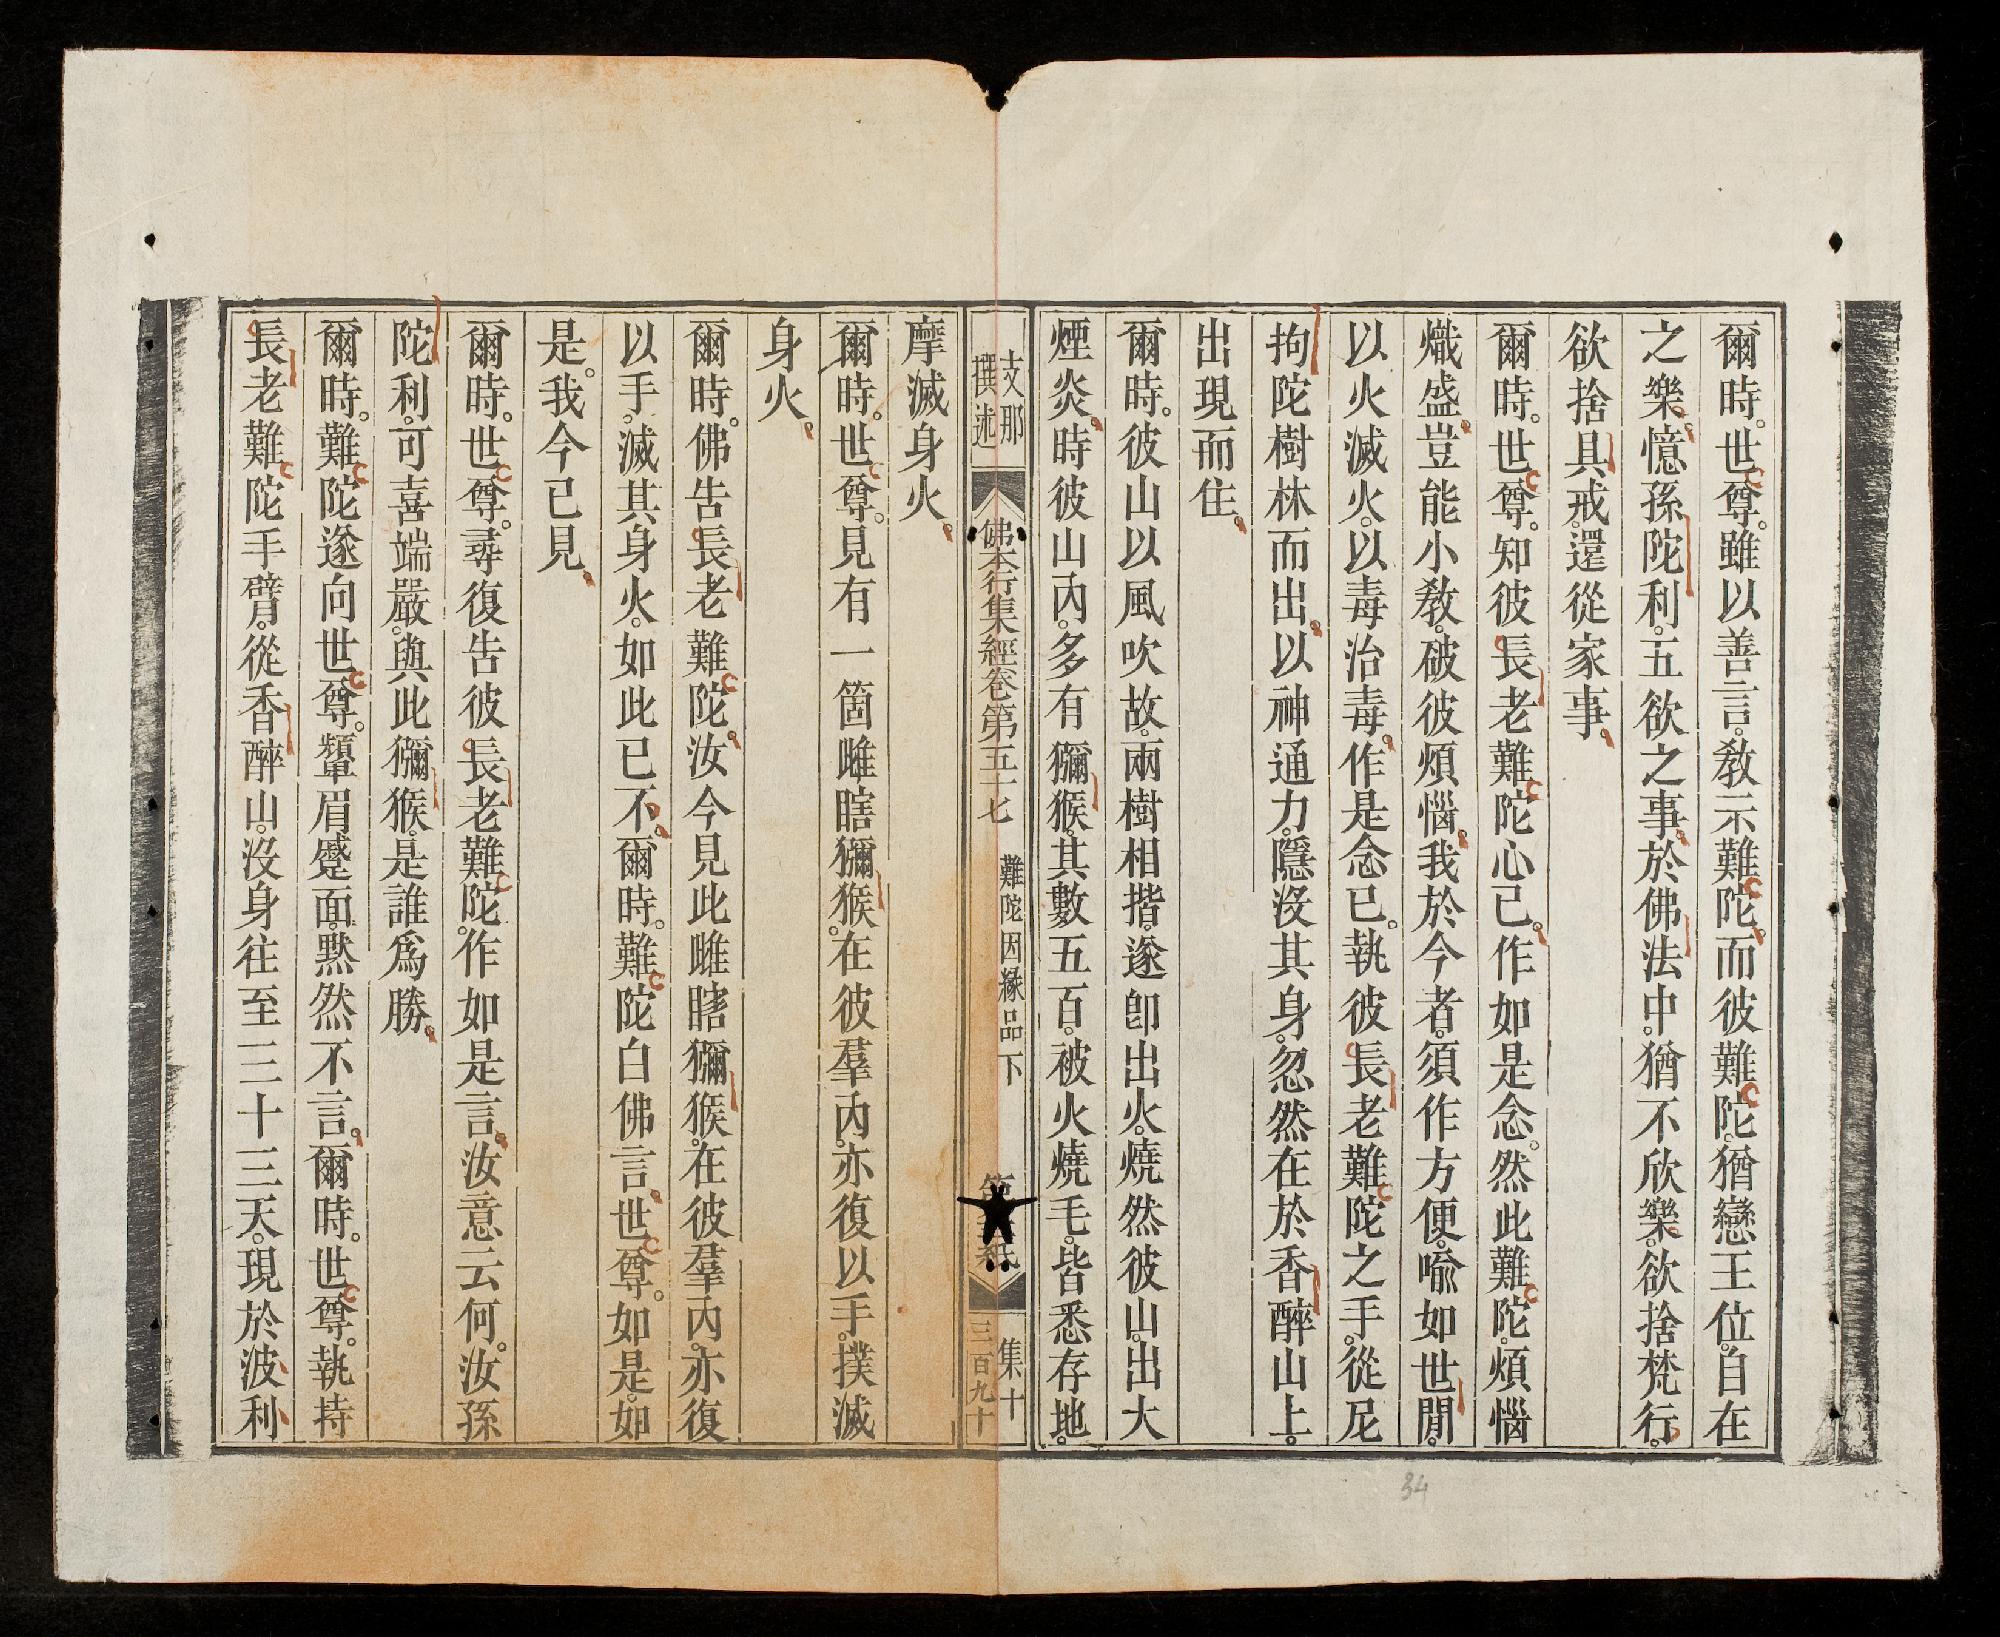 爾時。世尊。雖以善言。敎示難陀。而彼難陀。猶戀王位。自在
之樂。憶孫陀利。五欲之事。於佛法中。猶不欣樂。欲捨梵行。
欲捨具戒。還從家事。
爾時。世尊。知彼長老難陀心已。作如是念。然此難陀。煩惱
熾盛。豈能小敎。破彼煩惱。我於今者。須作方便。喩如世閒。
以火滅火。以毒治毒。作是念已。執彼長老難陀之手。從尼
拘陀樹林而出。以神通力。隱沒其身。忽然在於香醉山上。
出現而住。
爾時。彼山以風吹故。兩樹相揩。遂卽出火。燒然彼山。出大
煙炎。時彼山內。多有獼猴。其數五百。被火燒毛。皆悉存地。
支那
撰述
佛本行集經卷第五十七
難陀因緣品下
集十
三百九十
摩滅身火。
爾時。世尊。見有一箇雌瞎獼猴。在彼羣內。亦復以手。撲滅
身火。
爾時。佛告長老難陀。汝今見此雌瞎獼猴。在彼羣內。亦復
以手。滅其身火。如此已不。爾時。難陀白佛言。世尊。如是。如
是。我今已見。
爾時。世尊。尋復告彼長老難陀。作如是言。汝意云何。汝孫
陀利。可喜端嚴。與此獼猴。是誰爲勝。
爾時。難陀遂向世尊。顰眉蹙面。默然不言。爾時。世尊。執持
長老難陀手臂。從香醉山。沒身往至三十三天。現於波利
34